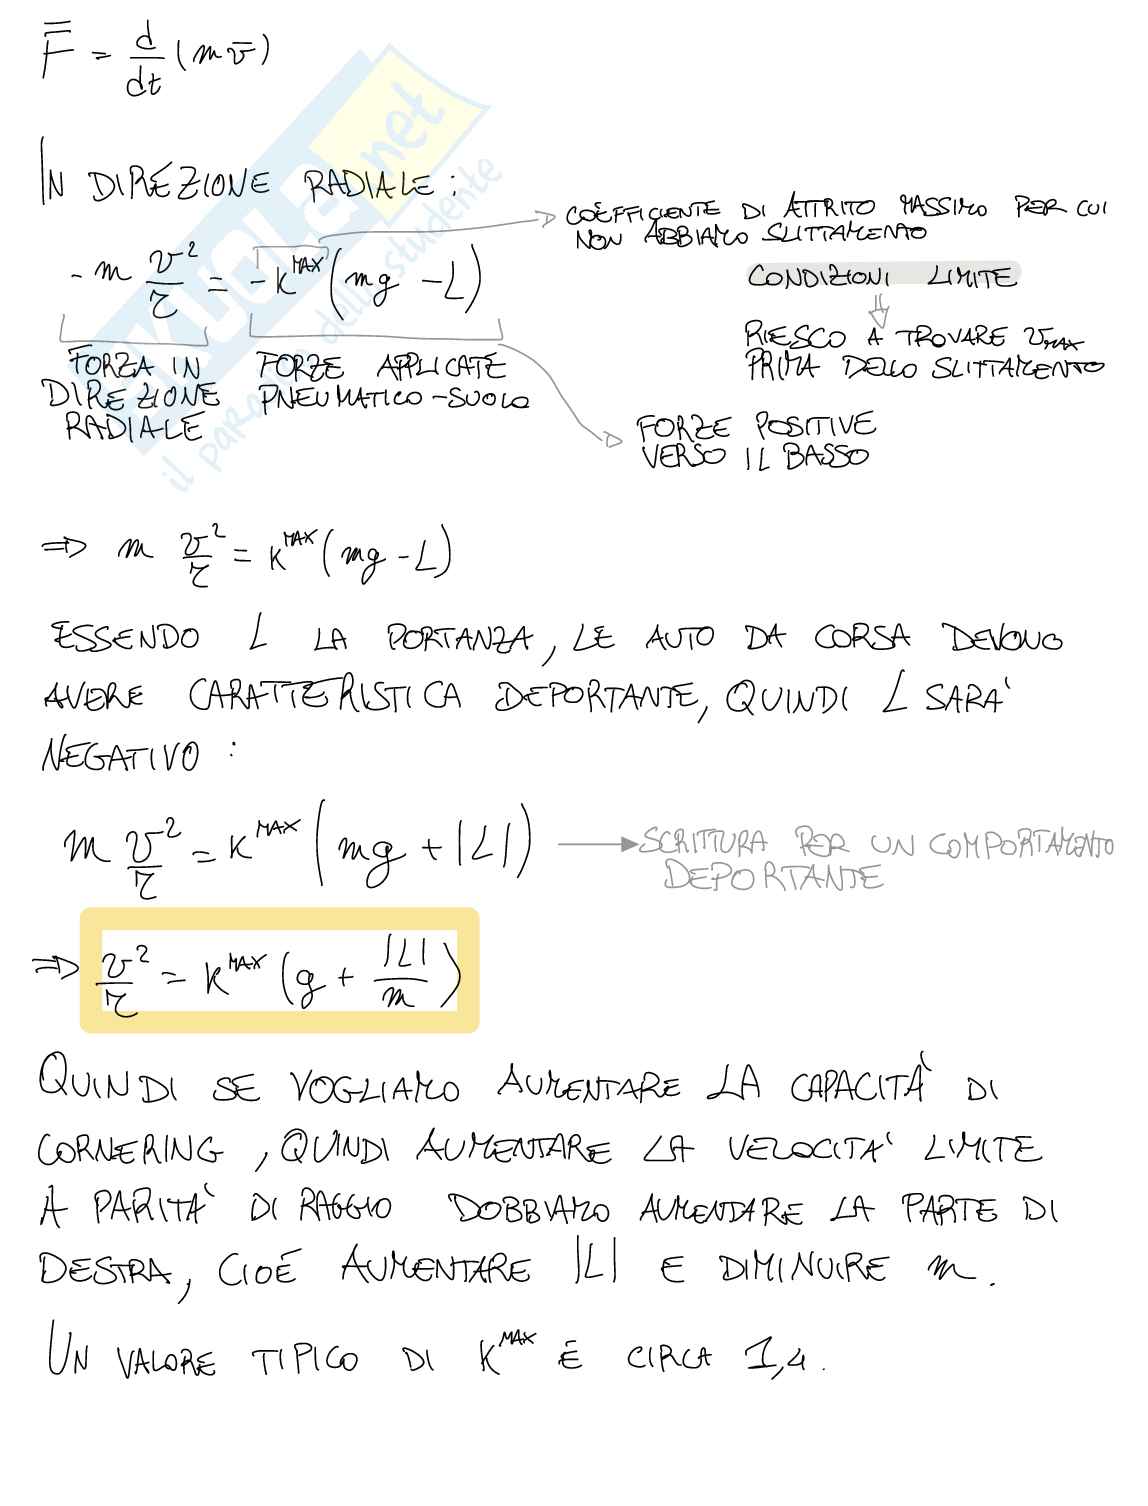 F̄ = d/dt (m v̄)
IN DIREZIONE RADIALE :
- m v²/r = - K^MAX (mg - L)
COEFFICIENTE DI ATTRITO MASSIMO PER CUI
NON ABBIAMO SLITTAMENTO
CONDIZIONI LIMITE
⇓
RIESCO A TROVARE v_MAX
PRIMA DELLO SLITTAMENTO
FORZA IN
DIREZIONE
RADIALE
FORZE APPLICATE
PNEUMATICO-SUOLO
FORZE POSITIVE
VERSO IL BASSO
⇒ m v²/r = K^MAX (mg - L)
ESSENDO L LA PORTANZA, LE AUTO DA CORSA DEVONO
AVERE CARATTERISTICA DEPORTANTE, QUINDI L SARA'
NEGATIVO :
m v²/r = K^MAX (mg + |L|) → SCRITTURA PER UN COMPORTAMENTO
DEPORTANTE
⇒ v²/r = K^MAX (g + |L|/m)
QUINDI SE VOGLIAMO AUMENTARE LA CAPACITÀ DI
CORNERING, QUINDI AUMENTARE LA VELOCITA' LIMITE
A PARITA' DI RAGGIO DOBBIAMO AUMENTARE LA PARTE DI
DESTRA, CIOÉ AUMENTARE |L| E DIMINUIRE m.
UN VALORE TIPICO DI K^MAX É CIRCA 1,4.
SKUOLA.net
il paradiso dello studente